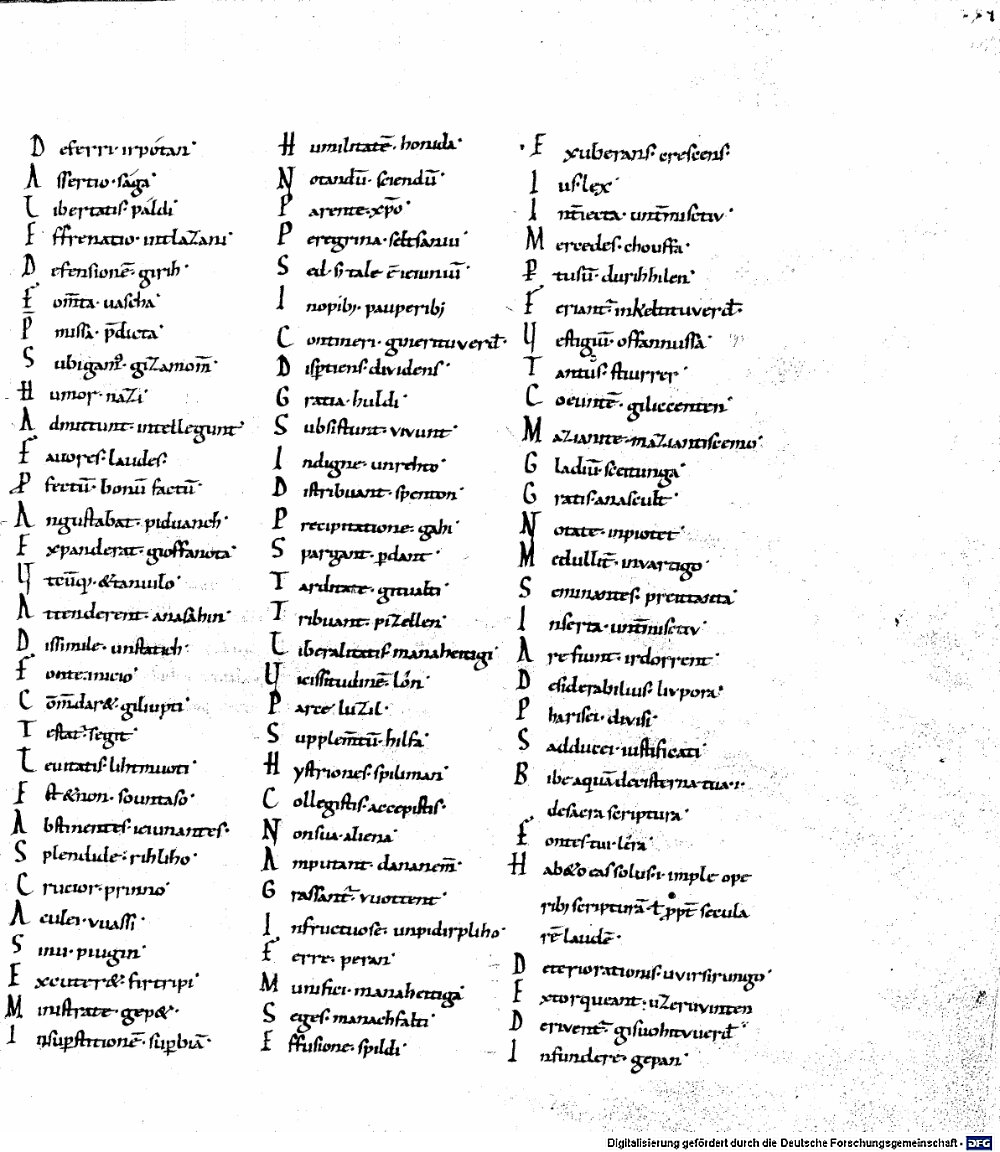 Deferri· irpótan·
Assertio· saga·
Libertatis· páldi·
Effrenatio· intlaZani·
Defensionē· girih·
Fom̄ta· uascha·
P̄missa· p̄dicta·
Subigam᷒· giZamom̄·
Humor· naZi·
Admittunt· intellegunt·
Fauores· laudes·
Pfectū· bonū factū·
Angustabat· piduanch·
Expanderat· gioffanota·
Ut&ūq;· &tanuilo·
Attenderent· anasáhin·
Dissimile· unstatich·
Fonte· inicio·
Cōm̄dar&· giliupti·
Testat᷒· segit·
Leuitatis· lihtmuoti·
Est&non· sountaso·
Abstinentes· ieiunantes·
Splendule· rihliho·
Crucior· prinno·
Aculei· vuassi·
Sinu· piugin·
Excuter&· firtripi·
Ministrate· gep&·
Insup̲stitionē· sup̲biā·
Humilitatē· honida·
Notandū· sciendū·
Parente· xp̄o·
Peregrina· seltsaniu·
Sed· si tale ē ieiuniū·
Inopib;· pauperib;
Contineri· giuerituverd̄·
Disp̲tiens· dividens·
Gratia· huldi·
Subsistunt· vivunt·
Indigne· unrehto·
Distribuant· spenton·
Precipitatione· gahi·
Spargant· p̲dant·
Tarditate· gitualti·
Tribuant· piZellen·
Liberalitatis· manaheitigi·
Uicissitudinē· lón·
Parce· luZil·
Supplem̄tū· hilfa·
Hystriones· spiliman·
Collegistis· accepistis·
Nonsua· aliena·
Amputant· dananem̄·
Grassant᷒· vuottent·
Infructuose· unpidirpliho·
Ferre· peran·
Munifici· manaheitiga·
Seges· manachfalti·
Effusione· spildi·
Exuberans· crescens·
Ius· lex·
Int̄iecta· unt̄miscitiv·
Mercedes· chouffa·
P̲tusū· durihhilen·
Feriant᷒· inkeltituverd̄·
Uestigiū· offannussā·
Tantus· stiurrer·
Coeuntē· giliccenten·
MaZiante· maZiantiscemo·
Gladiū· scitunga·
Gratis· anascult·
Notate· inpiotet·
Medullit᷒· invartigo·
Seminantes· preittanta·
Inserta· unt̄miscitiv·
Arefiunt· irdorrent·
Desiderabilius· livpora·
Pharisei· divisi·
Sadducei· iustificati·
Bibe aquā decisterna tua· i·
desacra scriptura·
Fontes tui· lēra·
Hab&o eas solus· i· imple ope
rib; scripturā· ł ppt̄ secula
rē laudē·
Deteriorationis· uvirsirungo·
Extorqueant· uZeruvinten
Derivent᷒· gisuohituverd̄·
Infundere· gepan·
Digitalisierung gefördert durch die Deutsche Forschungsgemeinschaft - DFG